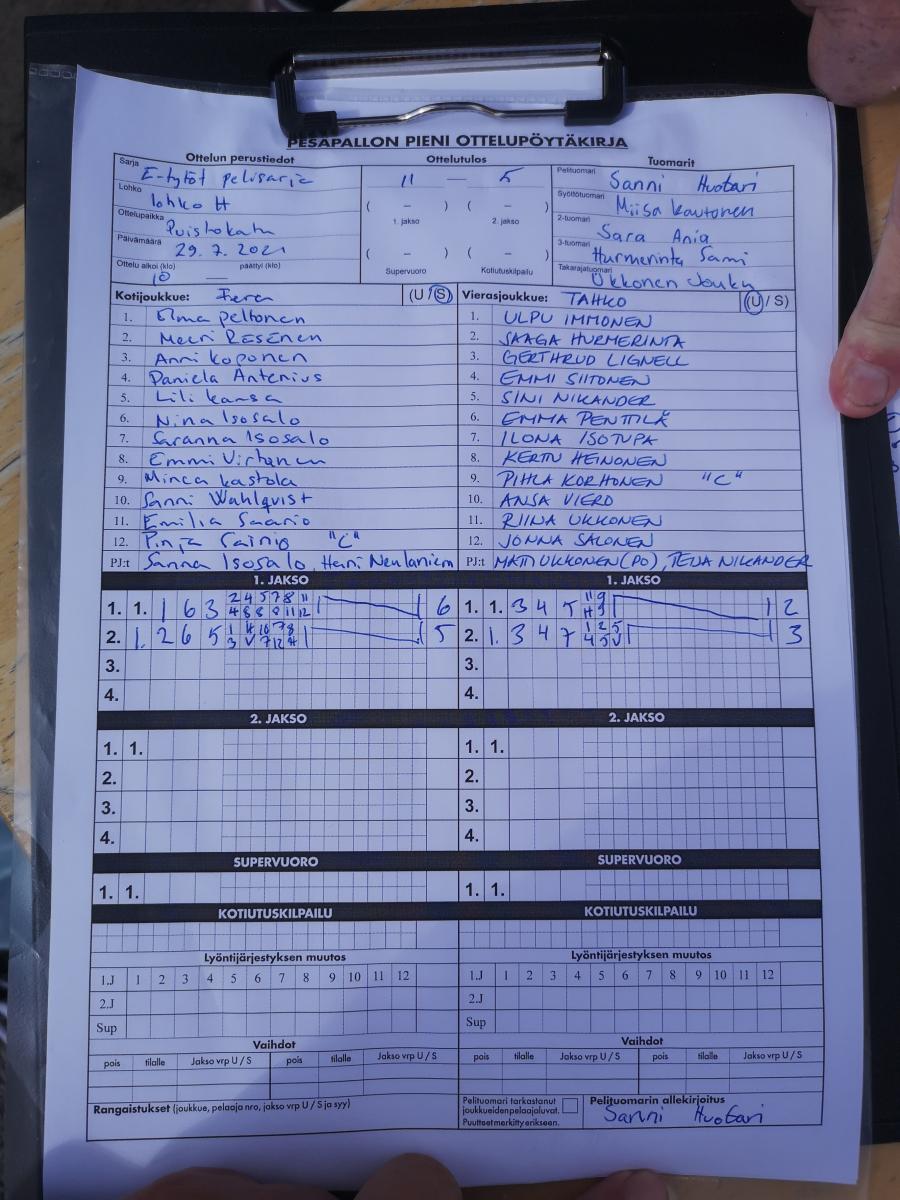 PESÄPALLON PIENI OTTELUPÖYTÄKIRJA
Ottelun perustiedot Ottelutulos Tuomarit
Sarja E-tytöt pelisarja 11 — 5 Pelituomari Sanni Huotari
Lohko lohko H ( – ) ( – ) Syöttötuomari Miisa Kautonen
Ottelupaikka Puistokatu 1. jakso 2. jakso 2-tuomari Sara Ania
Päivämäärä 29.7.2021 ( – ) ( – ) 3-tuomari Hurmerinta Sami
Ottelu alkoi (klo) 10 päättyi (klo) — Supervuoro Kotiutuskilpailu Takarajatuomari Ukkonen Jouku
Kotijoukkue: Fera (U/S) Vierasjoukkue: TAHKO (U/S)
1. Elma Peltonen 1. ULPU IMMONEN
2. Meeri Resenen 2. SAAGA HURMERINTA
3. Anni Koponen 3. GERTHRUD LIGNELL
4. Daniela Antenius 4. EMMI SIITONEN
5. Lili Kansa 5. SINI NIKANDER
6. Nina Isosalo 6. EMMA PENTTILÄ
7. Saranna Isosalo 7. ILONA ISOTUPA
8. Emmi Virtanen 8. KERTU HEINONEN
9. Minea Kastola 9. PIHLA KORHONEN "C"
10. Sanni Wahlqvist 10. ANSA VIERO
11. Emilia Saario 11. RIINA UKKONEN
12. Pinja Cainio "C" 12. JONNA SALONEN
PJ:t Sanna Isosalo, Heni Neulaniem PJ:t MATTI UKKONEN (PO), TEIJA NIKANDER
1. JAKSO 1. JAKSO
1. 1. 1 6 3 6 1. 1. 3 4 5 2
2. 1. 2 6 5 5 2. 1. 3 4 7 3
3. 3.
4. 4.
2. JAKSO 2. JAKSO
1. 1. 1. 1.
2. 2.
3. 3.
4. 4.
SUPERVUORO SUPERVUORO
1. 1. 1. 1.
KOTIUTUSKILPAILU KOTIUTUSKILPAILU
Lyöntijärjestyksen muutos Lyöntijärjestyksen muutos
1.J 1 2 3 4 5 6 7 8 9 10 11 12 1.J 1 2 3 4 5 6 7 8 9 10 11 12
2.J 2.J
Sup Sup
Vaihdot Vaihdot
pois tilalle Jakso vrp U / S pois tilalle Jakso vrp U / S pois tilalle Jakso vrp U / S pois tilalle Jakso vrp U / S
Rangaistukset (joukkue, pelaaja nro, jakso vrp U / S ja syy) Pelituomari tarkastanut joukkueiden pelaajaluvat. Puutteet merkitty erikseen. Pelituomarin allekirjoitus
Sanni Huotari